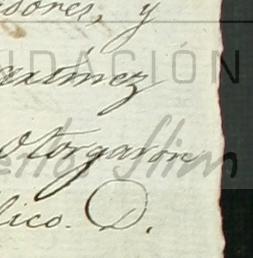 sores, y
UNDACIÓN
aximez
otorgaron
lico. D.